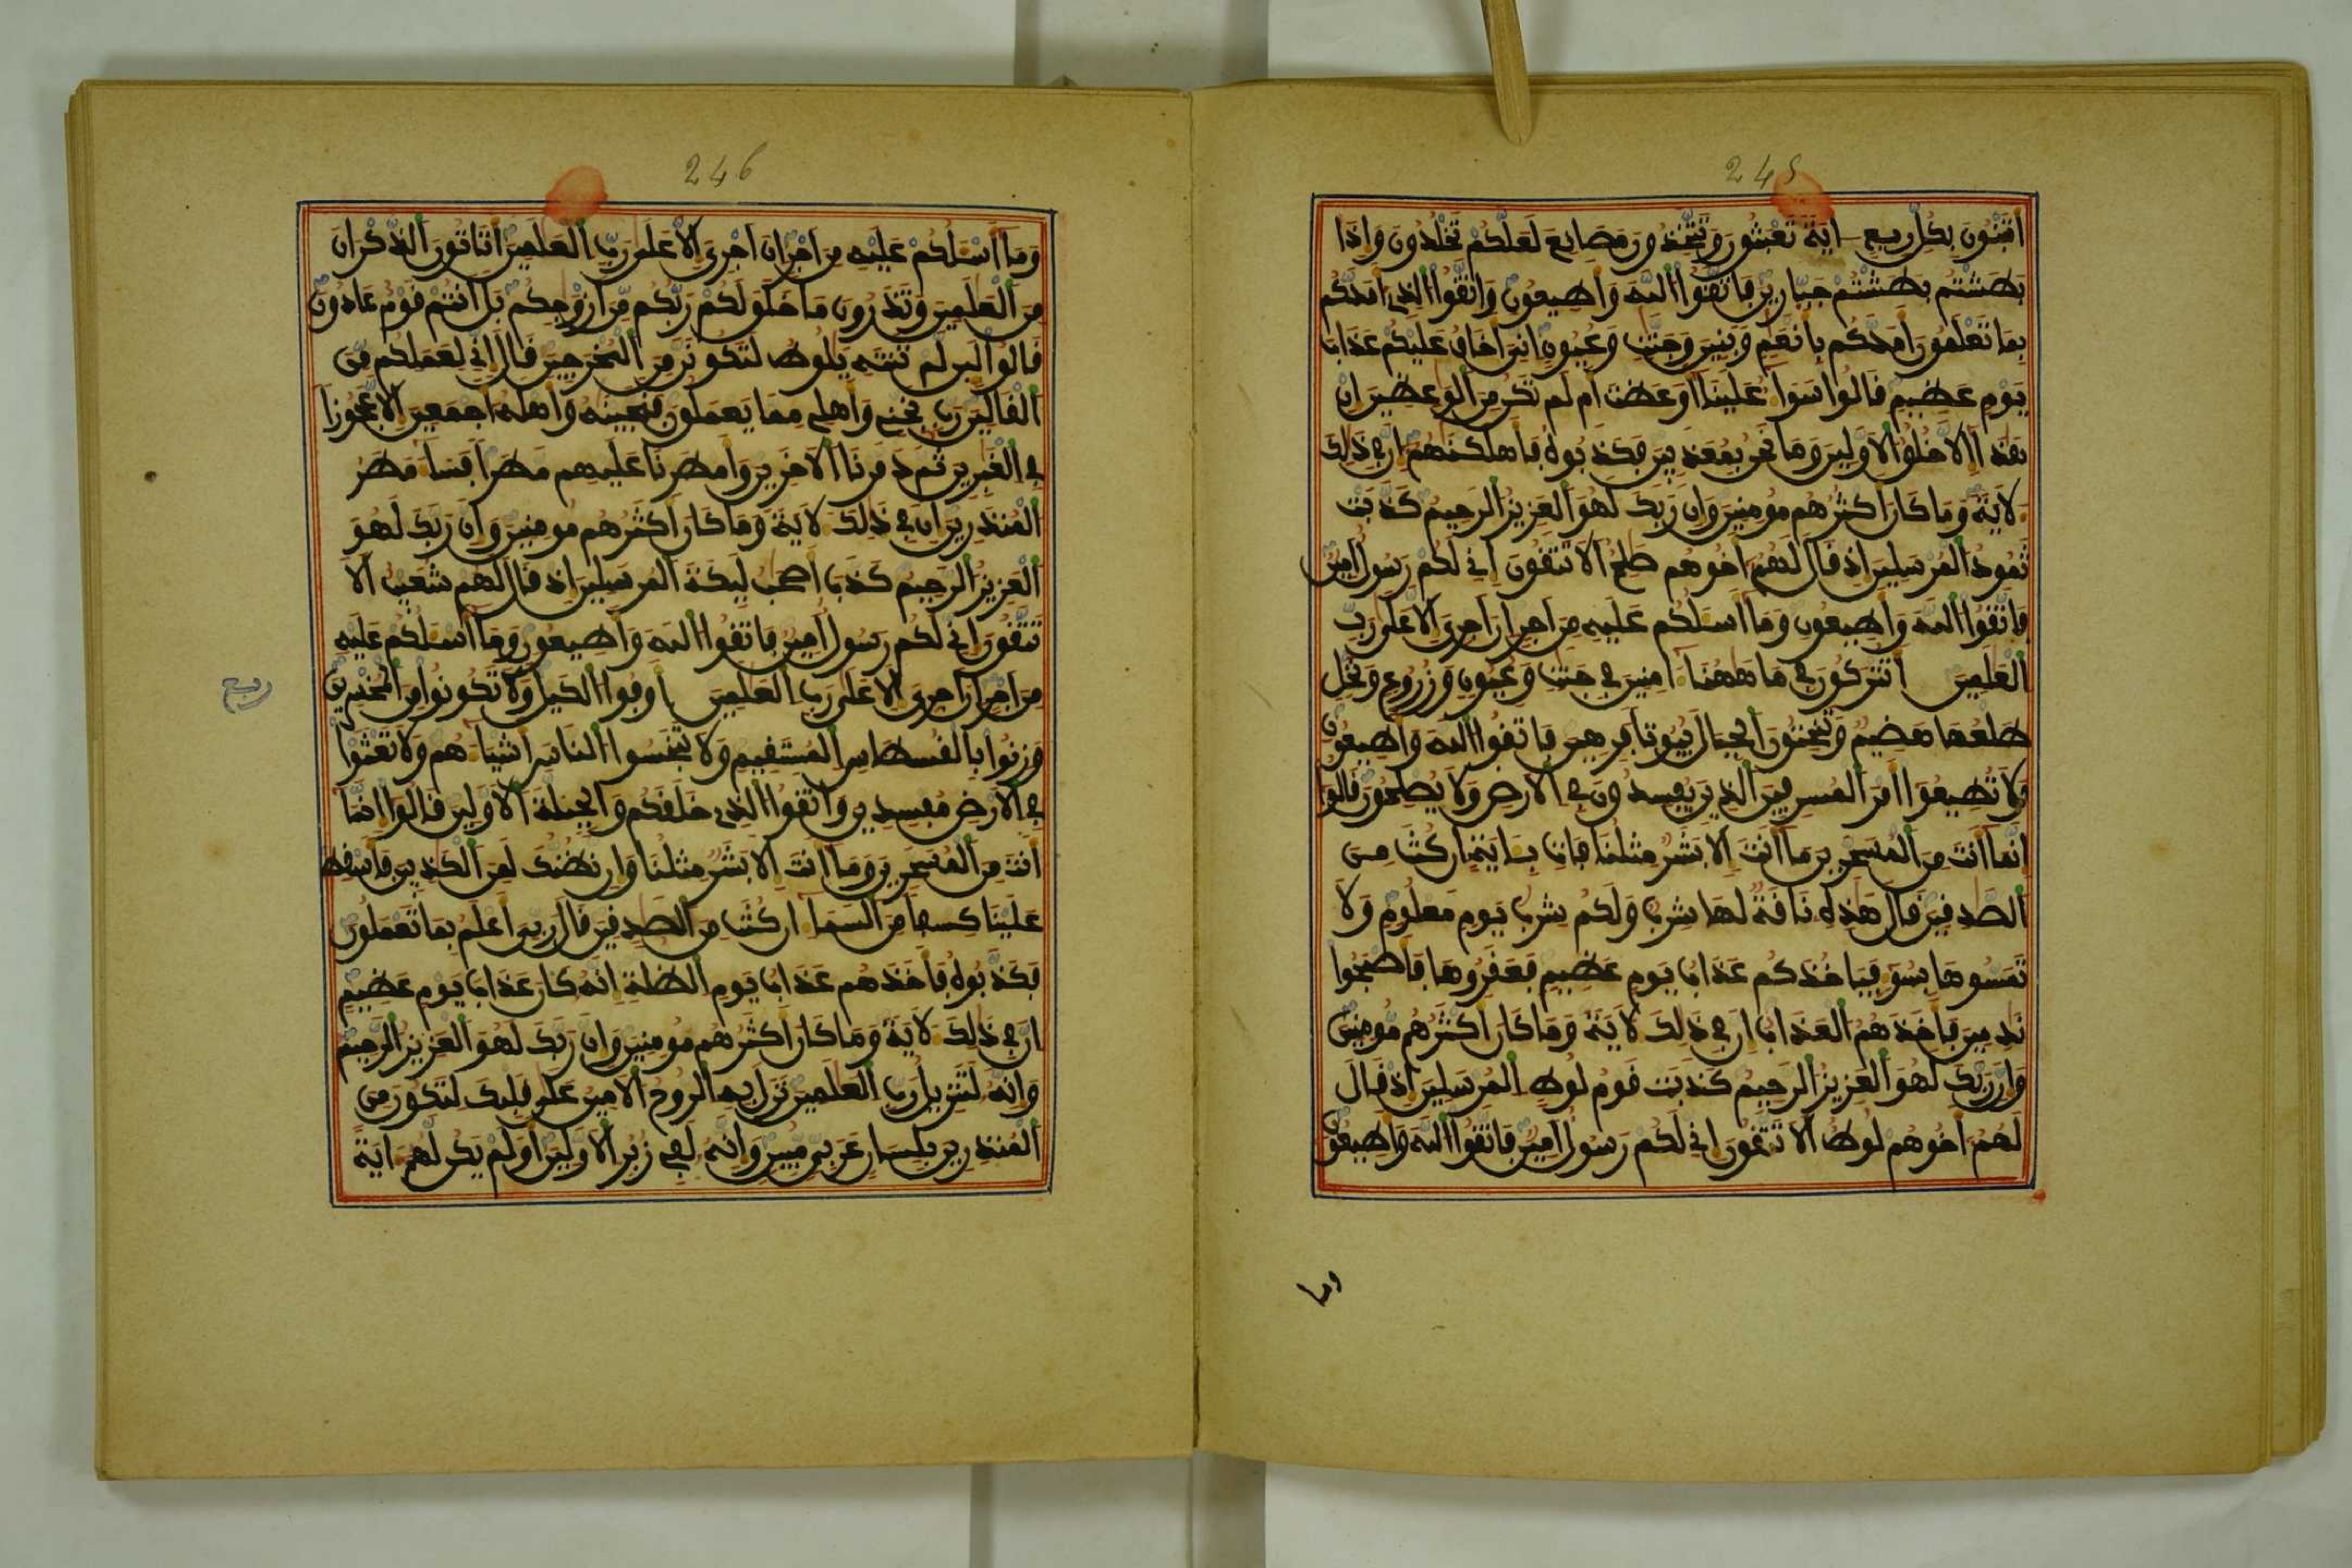 245
اتبنون بكل ريع اية تعبثون وتتخذون مصانع لعلكم تخلدون واذا
بطشتم بطشتم جبارين فاتقوا الله واطيعون واتقوا الذي امدكم
بما تعلمون امدكم بانعم وبنين وجنت وعيون اني اخاف عليكم عذاب
يوم عظيم قالوا سواء علينا اوعظت ام لم تكن من الوعظين ان
هذا الا خلق الاولين وما نحن بمعذبين فكذبوه فاهلكنهم ان في ذلك
لاية وما كان اكثرهم مومنين وان ربك لهو العزيز الرحيم كذبت
ثمود المرسلين اذ قال لهم اخوهم صلح الا تتقون اني لكم رسول امين
فاتقوا الله واطيعون وما اسلكم عليه من اجر ان اجري الا على رب
العلمين اتتركون في ما ههنا امنين في جنت وعيون وزروع ونخل
طلعها هضيم وتنحتون من الجبال بيوتا فرهين فاتقوا الله واطيعون
ولا تطيعوا امر المسرفين الذين يفسدون في الارض ولا يصلحون قالوا
انما انت من المسحرين ما انت الا بشر مثلنا فات باية ان كنت من
الصدقين قال هذه ناقة لها شرب ولكم شرب يوم معلوم ولا
تمسوها بسوء فياخذكم عذاب يوم عظيم فعقروها فاصبحوا
ندمين فاخذهم العذاب ان في ذلك لاية وما كان اكثرهم مومنين
وان ربك لهو العزيز الرحيم كذبت قوم لوط المرسلين اذ قال
لهم اخوهم لوط الا تتقون اني لكم رسول امين فاتقوا الله واطيعون
وما
246
وما اسلكم عليه من اجر ان اجري الا على رب العلمين اتاتون الذكران
من العلمين وتذرون ما خلق لكم ربكم من ازوجكم بل انتم قوم عادون
قالوا لين لم تنته يلوط لتكونن من المخرجين قال اني لعملكم من
القالين رب نجني واهلي مما يعملون فنجينه واهله اجمعين الا عجوزا
في الغبرين ثم دمرنا الاخرين وامطرنا عليهم مطرا فساء مطر
المنذرين ان في ذلك لاية وما كان اكثرهم مومنين وان ربك لهو
العزيز الرحيم كذب اصحب ليكة المرسلين اذ قال لهم شعيب الا
تتقون اني لكم رسول امين فاتقوا الله واطيعون وما اسلكم عليه
من اجر ان اجري الا على رب العلمين اوفوا الكيل ولا تكونوا من المخسرين
ربع
وزنوا بالقسطاس المستقيم ولا تبخسوا الناس اشياءهم ولا تعثوا
في الارض مفسدين واتقوا الذي خلقكم والجبلة الاولين قالوا انما
انت من المسحرين وما انت الا بشر مثلنا وان نظنك لمن الكذبين فاسقط
علينا كسفا من السماء ان كنت من الصدقين قال ربي اعلم بما تعملون
فكذبوه فاخذهم عذاب يوم الظلة انه كان عذاب يوم عظيم
ان في ذلك لاية وما كان اكثرهم مومنين وان ربك لهو العزيز الرحيم
وانه لتنزيل رب العلمين نزل به الروح الامين على قلبك لتكون من
المنذرين بلسان عربي مبين وانه لفي زبر الاولين اولم يكن لهم اية